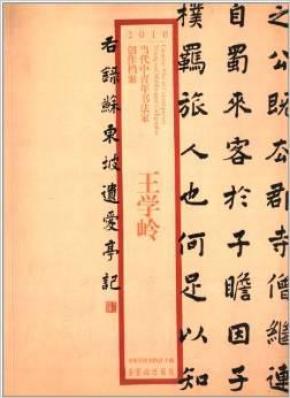 之公既去郡寺僧繼連
自蜀来客於子瞻因子
樸羈旅人也何足以知
2010
当代中青年书法家
创作档案
王学岭
右錄蘇東坡遺愛亭記